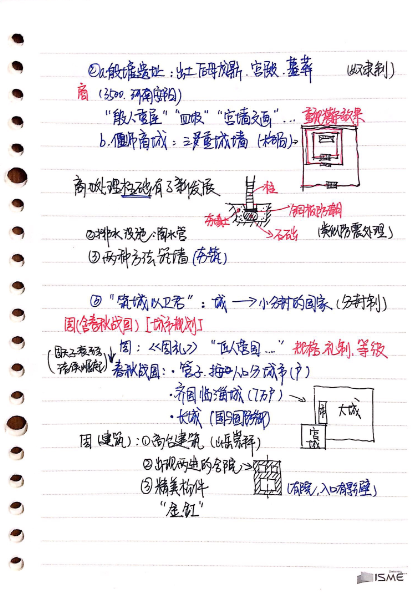 ②a.殷墟遗址：出土后母戊鼎、宫殿、墓葬 (奴隶制)
商 (3500.河南安阳)
"殷人重屋" "四阿" "宫墙文画"...
b.偃师商城：三重城墙 (格局)
商地处理柱础有了新发展
柱
夯土 铜板防潮
石础 (类似防震处理)
②排水设施：陶水管
③两种方法筑墙 (夯筑)
③ "筑城以卫君"：城 → 小分封的国家 (分封制)
周(含春秋战国) [城市规划]
周：《周礼》 "匠人营国..." 规格、礼制、等级
春秋战国：·管子.按人口分城市(户)
·齐国临淄城 (7万户)
·长城 (国与国防御)
大城
宫城
周(建筑)：①高台建筑 (山岳崇拜)
②出现两进的合院
(有院,入口有影壁)
③精美构件
"金釭"
ISME